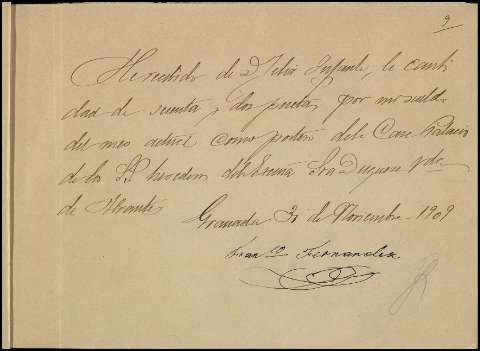 9
He recibido de D. Felix Infante, la canti
dad de sesenta y dos pesetas, por mi sueldo
del mes actual como portero de la Casa Palacio
de los SS herederos de la Exma Sra Duquesa Vda
de Abrantes
Granada 31 de Diciembre - 1909
Franco Fernandez